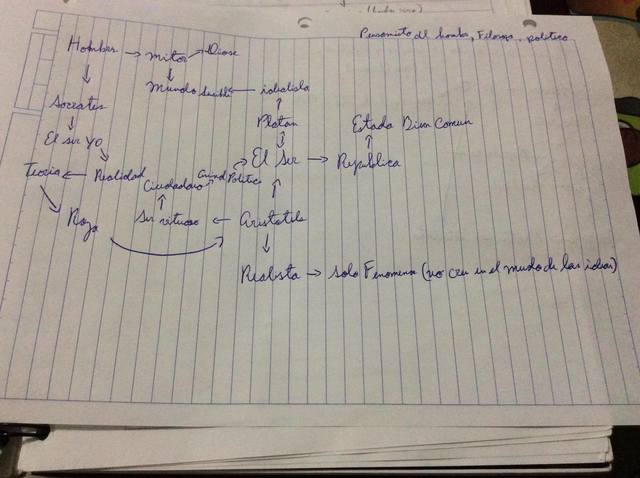 Pensamiento del hombre, Filosofo, politico
Hombre → mitos → Dioses
Mundo Sensible ← idealista
Socrates
Platon
Estado Bien Comun
El ser yo
El Ser → Republica
Teoria ← Realidad
Ciudadano
Animal Politico
Raza
Ser virtuoso ← Aristotele
Realista → Solo Fenomenos (no cree en el mundo de las ideas)